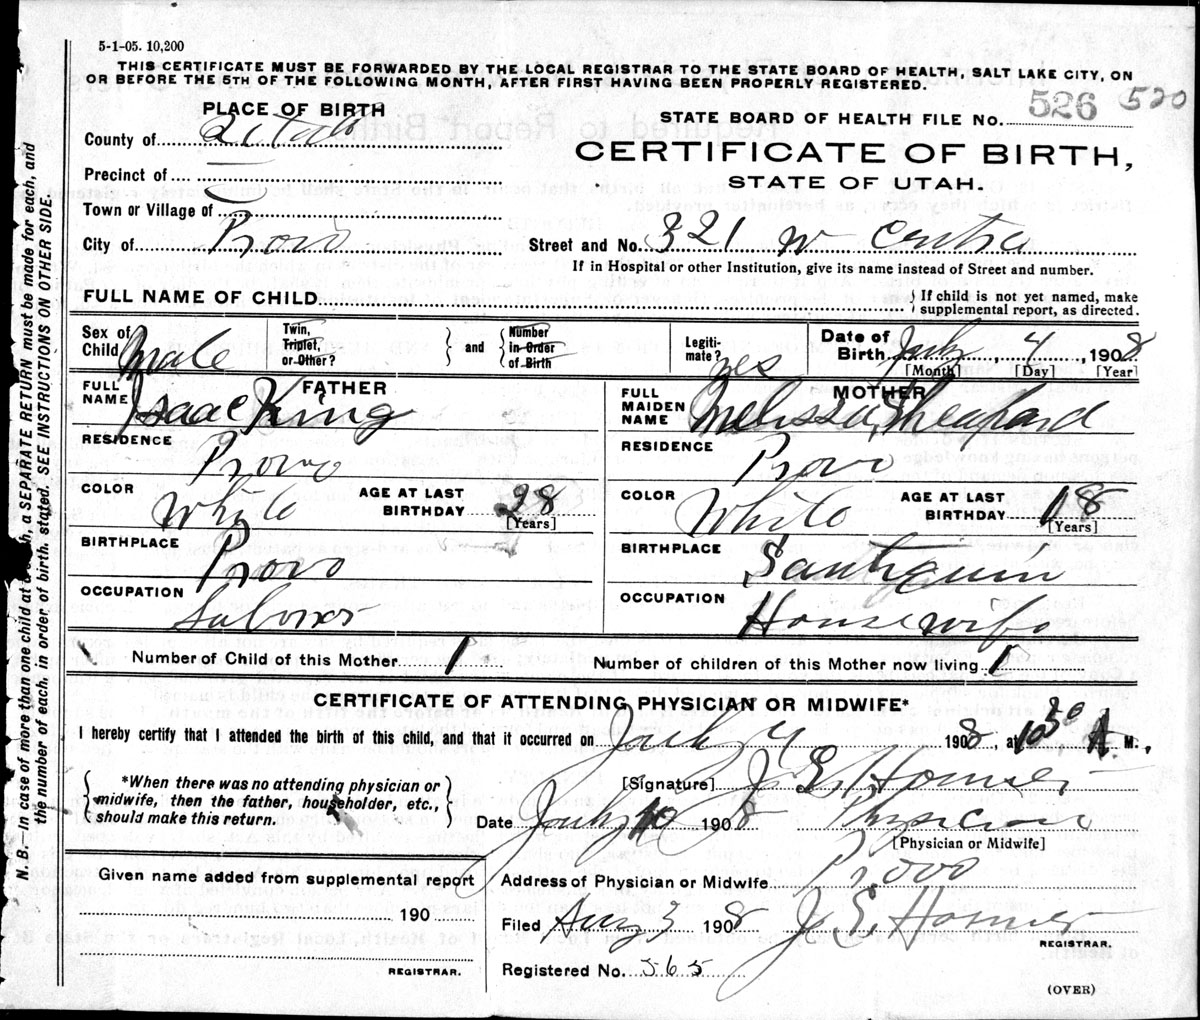 5-1-05. 10,200
THIS CERTIFICATE MUST BE FORWARDED BY THE LOCAL REGISTRAR TO THE STATE BOARD OF HEALTH, SALT LAKE CITY, ON
OR BEFORE THE 5TH OF THE FOLLOWING MONTH, AFTER FIRST HAVING BEEN PROPERLY REGISTERED.
PLACE OF BIRTH
STATE BOARD OF HEALTH FILE NO. 526 520
County of Utah
CERTIFICATE OF BIRTH,
Precinct of
STATE OF UTAH.
Town or Village of
City of Provo Street and No. 321 W Center
If in Hospital or other Institution, give its name instead of Street and number.
FULL NAME OF CHILD } If child is not yet named, make
supplemental report, as directed.
Sex of Child Male Twin, Triplet, or Other? } and { Number in Order of Birth Legiti-mate? yes Date of Birth July 4, 1908
[Month] [Day] [Year]
FATHER MOTHER
FULL NAME Isaac King FULL MAIDEN NAME Melissa Shephard
RESIDENCE Provo RESIDENCE Provo
COLOR White AGE AT LAST BIRTHDAY 28 [Years] COLOR White AGE AT LAST BIRTHDAY 18 [Years]
BIRTHPLACE Provo BIRTHPLACE Santaquin
OCCUPATION Laborer OCCUPATION Housewife
Number of Child of this Mother 1 Number of children of this Mother now living 1
CERTIFICATE OF ATTENDING PHYSICIAN OR MIDWIFE*
I hereby certify that I attended the birth of this child, and that it occurred July 4 1908, at 10 30 A M.,
*When there was no attending physician or
midwife, then the father, householder, etc.,
should make this return.
[Signature] J. E. Homer
Date July 10 1908 Physician
[Physician or Midwife]
Given name added from supplemental report
Address of Physician or Midwife Provo
190
Filed Aug 3 1908 J E Homer
REGISTRAR.
REGISTRAR.
Registered No. 565
(OVER)
N. B.—In case of more than one child at a a SEPARATE RETURN must be made for each, and
the number of each, in order of birth, stated. SEE INSTRUCTIONS ON OTHER SIDE.